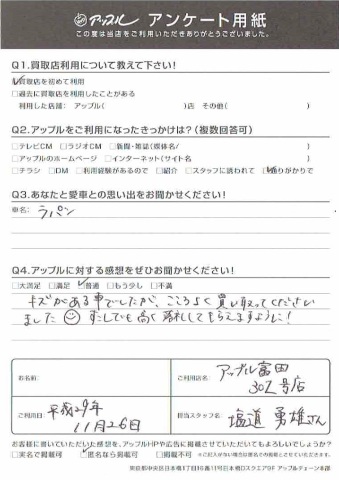 アップル アンケート用紙
この度は当店をご利用いただきありがとうございました。
Q1.買取店利用について教えて下さい!
☑買取店を初めて利用
□過去に買取店を利用したことがある
利用した店舗: アップル( )店 その他( )
Q2.アップルをご利用になったきっかけは?(複数回答可)
□テレビCM □ラジオCM □新聞・雑誌(媒体名/ )
□アップルのホームページ □インターネット(サイト名 )
□チラシ □DM □利用経験があるので □紹介 □スタッフに誘われて ☑通りがかりで
Q3.あなたと愛車との思い出をお聞かせください!
車名: ラパン
Q4.アップルに対する感想をぜひお聞かせください!
□大満足 □満足 ☑普通 □もう少し □不満
キズがある車でしたが、こころよく買い取ってください
ました☺ 少しでも高く落札してもらえますように!
お名前:
ご利用店名: アップル富田
302号店
ご利用日: 平成29年
11月26日
担当スタッフ名: 塩道 勇雄さん
お客様に書いていただいた感想を、アップルHPや広告に掲載させていただいてもよろしいでしょうか?
□実名で掲載可 ☑匿名なら掲載可 □掲載不可 ※ご記入が無い場合は匿名での掲載とさせていただきます。
東京都中央区日本橋1丁目16番11号日本橋DスクエアBF アップルチェーン本部